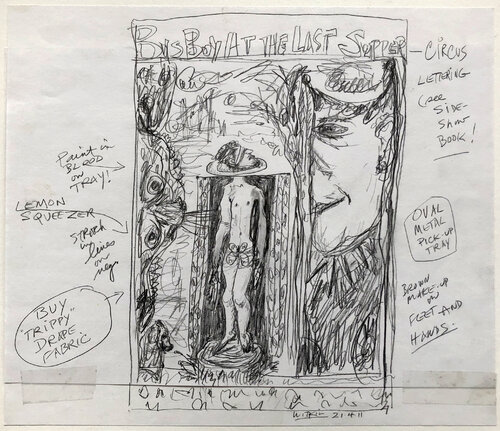 BUS BOY AT THE LAST SUPPER
— CIRCUS
LETTERING
(SEE
SIDE-
SHOW
BOOK!
Paint in
BLOOD
on
TRAY!
LEMON
SQUEEZER
lines
on
negs
BUY
"TRIPPY"
DRAPE
FABRIC
OVAL
METAL
PICK-UP
TRAY
BROWN
MAKE-UP
ON
FEET AND
HANDS.
WITKIN 21 4 11